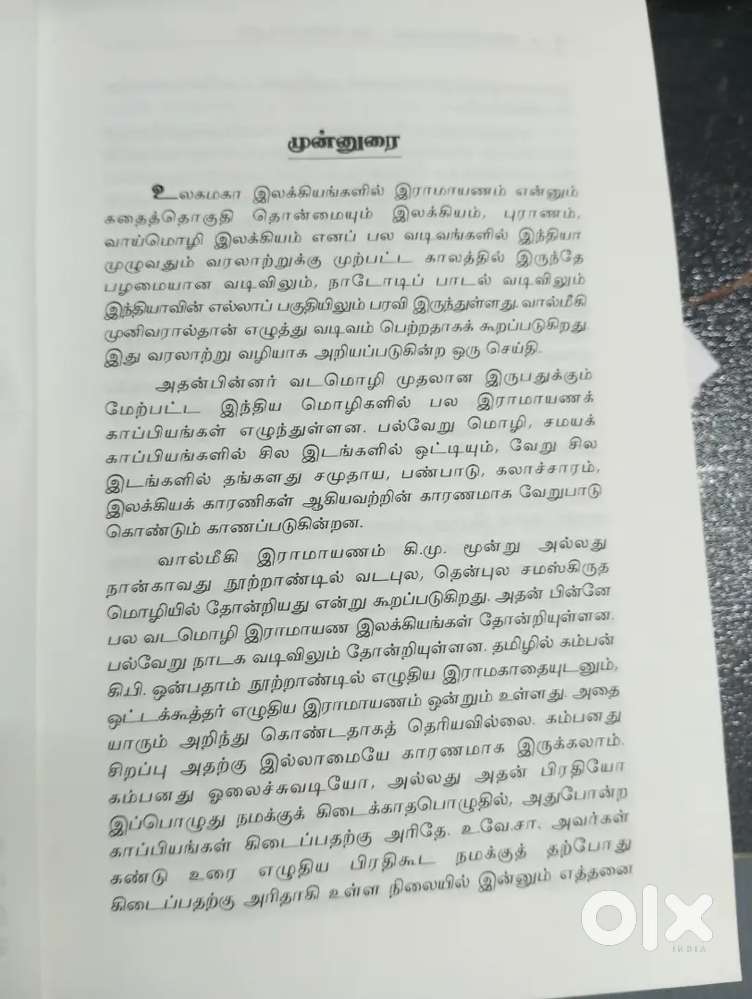 முன்னுரை
உலகமகா இலக்கியங்களில் இராமாயணம் என்னும்
கதைத்தொகுதி தொன்மையும் இலக்கியம், புராணம்,
வாய்மொழி இலக்கியம் எனப் பல வடிவங்களில் இந்தியா
முழுவதும் வரலாற்றுக்கு முற்பட்ட காலத்தில் இருந்தே
பழமையான வடிவிலும், நாடோடிப் பாடல் வடிவிலும்
இந்தியாவின் எல்லாப் பகுதியிலும் பரவி இருந்துள்ளது. வால்மீகி
முனிவரால்தான் எழுத்து வடிவம் பெற்றதாகக் கூறப்படுகிறது.
இது வரலாற்று வழியாக அறியப்படுகின்ற ஒரு செய்தி.
அதன்பின்னர் வடமொழி முதலான இருபதுக்கும்
மேற்பட்ட இந்திய மொழிகளில் பல இராமாயணக்
காப்பியங்கள் எழுந்துள்ளன. பல்வேறு மொழி, சமயக்
காப்பியங்களில் சில இடங்களில் ஒட்டியும், வேறு சில
இடங்களில் தங்களது சமுதாய, பண்பாடு, கலாச்சாரம்,
இலக்கியக் காரணிகள் ஆகியவற்றின் காரணமாக வேறுபாடு
கொண்டும் காணப்படுகின்றன.
வால்மீகி இராமாயணம் கி.மு. மூன்று அல்லது
நான்காவது நூற்றாண்டில் வடபுல, தென்புல சமஸ்கிருத
மொழியில் தோன்றியது என்று கூறப்படுகிறது. அதன் பின்னே
பல வடமொழி இராமாயண இலக்கியங்கள் தோன்றியுள்ளன.
பல்வேறு நாடக வடிவிலும் தோன்றியுள்ளன. தமிழில் கம்பன்
கி.பி. ஒன்பதாம் நூற்றாண்டில் எழுதிய இராமகாதையுடனும்,
ஒட்டக்கூத்தர் எழுதிய இராமாயணம் ஒன்றும் உள்ளது. அதை
யாரும் அறிந்து கொண்டதாகத் தெரியவில்லை. கம்பனது
சிறப்பு அதற்கு இல்லாமையே காரணமாக இருக்கலாம்.
கம்பனது ஓலைச்சுவடியோ, அல்லது அதன் பிரதியோ
இப்பொழுது நமக்குக் கிடைக்காதபொழுதில், அதுபோன்ற
காப்பியங்கள் கிடைப்பதற்கு அரிதே. உ.வே.சா. அவர்கள்
கண்டு உரை எழுதிய பிரதிகூட நமக்குத் தற்போது
கிடைப்பதற்கு அரிதாகி உள்ள நிலையில் இன்னும் எத்தனை
olx
INDIA